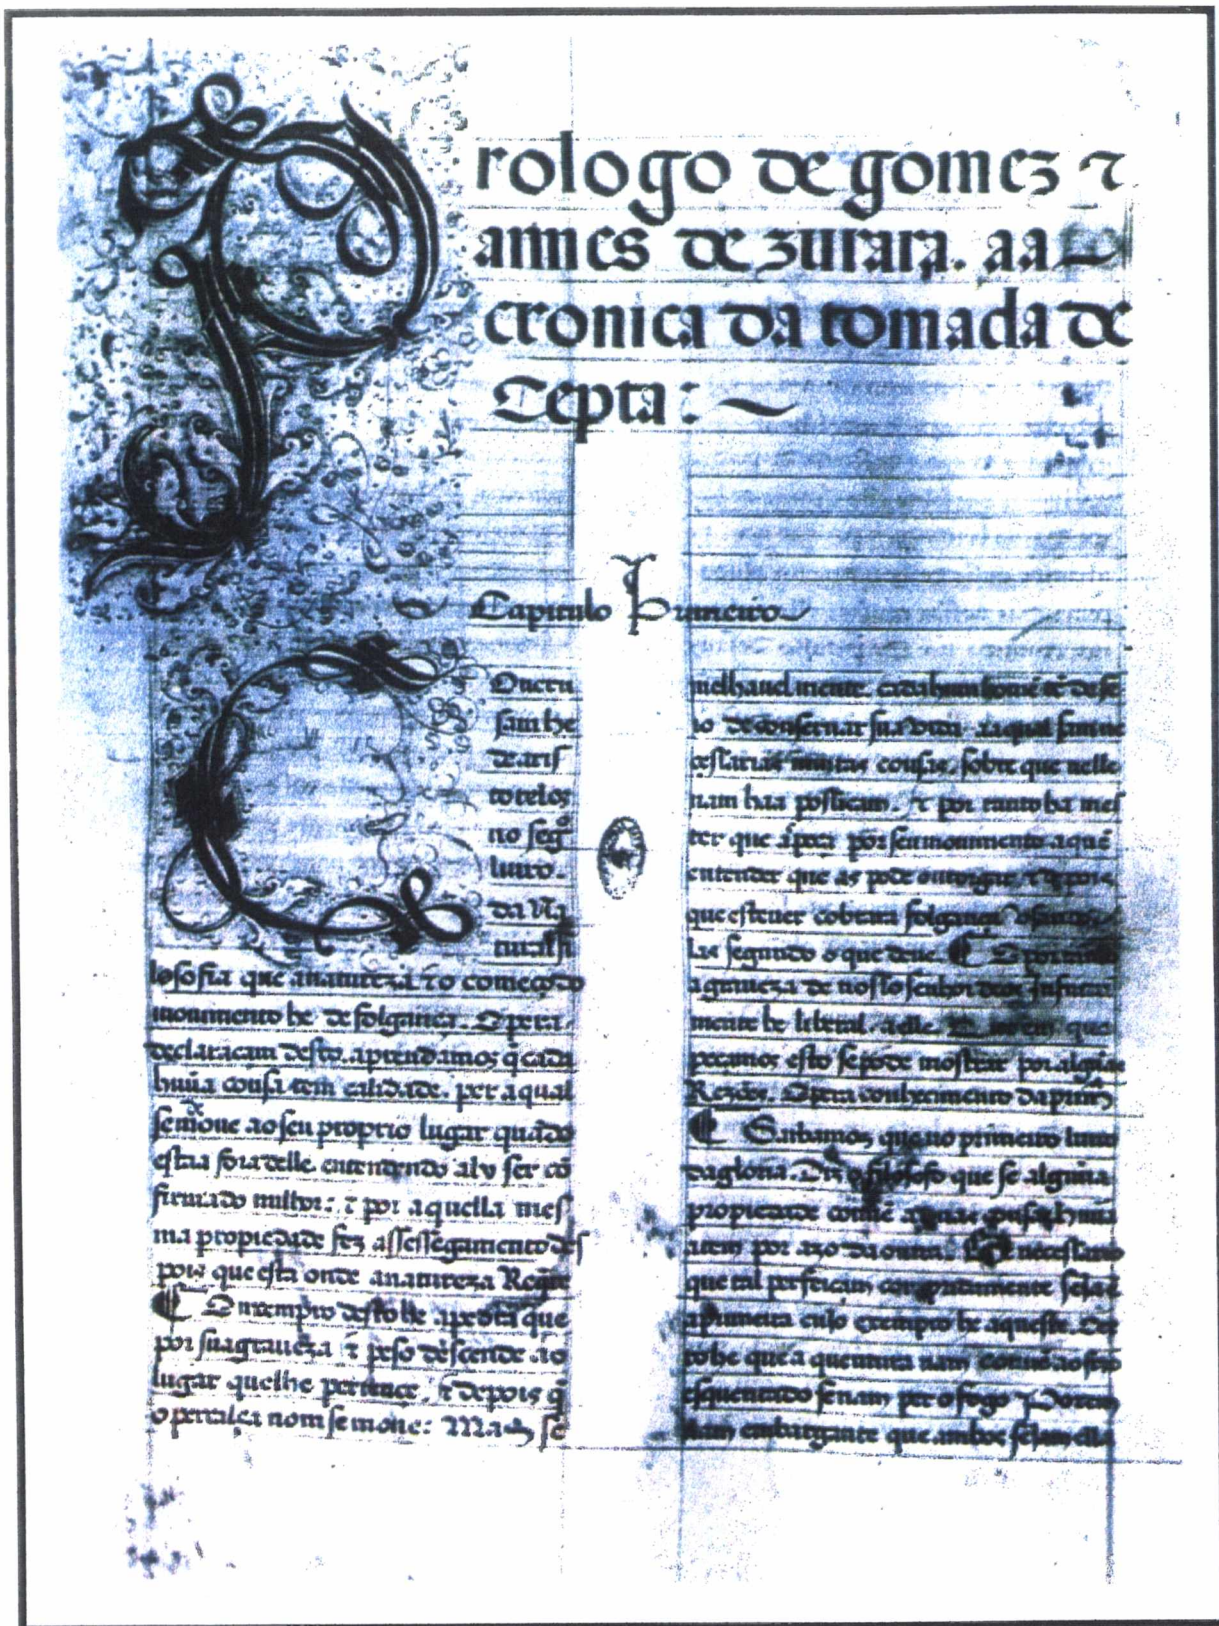 Prologo de gomez ⁊
annes de zurara. aa
cronica da tomada de
Cepta:
Capitulo Primeiro
Concru
sam he
de aris
toteles
no segº
liuro.
da Na
tural fi
losofia que anatureza ⁊ o começo do
mouimento he de folgança. E pera
declaracam desto. aprendamos q̃ cada
huũa cousa tem calidade. per aqual
se moue ao seu proprio lugar quãdo
esta fora delle. entendendo aly ser cõ
firmado milhor: ⁊ por aquella mes
ma propiedade fez assessegamento des
pois que esta onde anatureza Reqre
¶ Enxempro desto he apedra que
por sua graueza ⁊ peso desçende ao
lugar que lhe pertençe. ⁊ depois q̃
o percalça nom se moue: Mas se
melhauelmente. cada hum home tẽ dese
io de conseruar sua vida. aaqual sam ne
cessarias muitas cousas. sobre que nelle
nam haa possicam. ⁊ por tanto ha mes
ter que apeça por seu mouimento aquẽ
entender que as pode outorgar. ⁊ depois
que esteuer cobrara folgança
las segundo o que deue. ¶ E por tanto
agrandeza de nosso senhor deos Infinta
mente he liberal. aelle. que
peçamos esto se pode mostrar por algũas
Rezões. E pera conhecimento da primrª
¶ Saibamos que no primeiro liuro
dagloria. Diz o filosofo que se algũa
propiedade conuẽ aduas cousas. hũa
atem por azo da outra. he neçessario
que tal perfeiçam compridamente seja ẽ
aprimeira cuio exempro he aqueste.
to he que a quentura nam conuẽ ao ferro
esquentado senam per o fogo Porem
nam embargante que ambos sejam